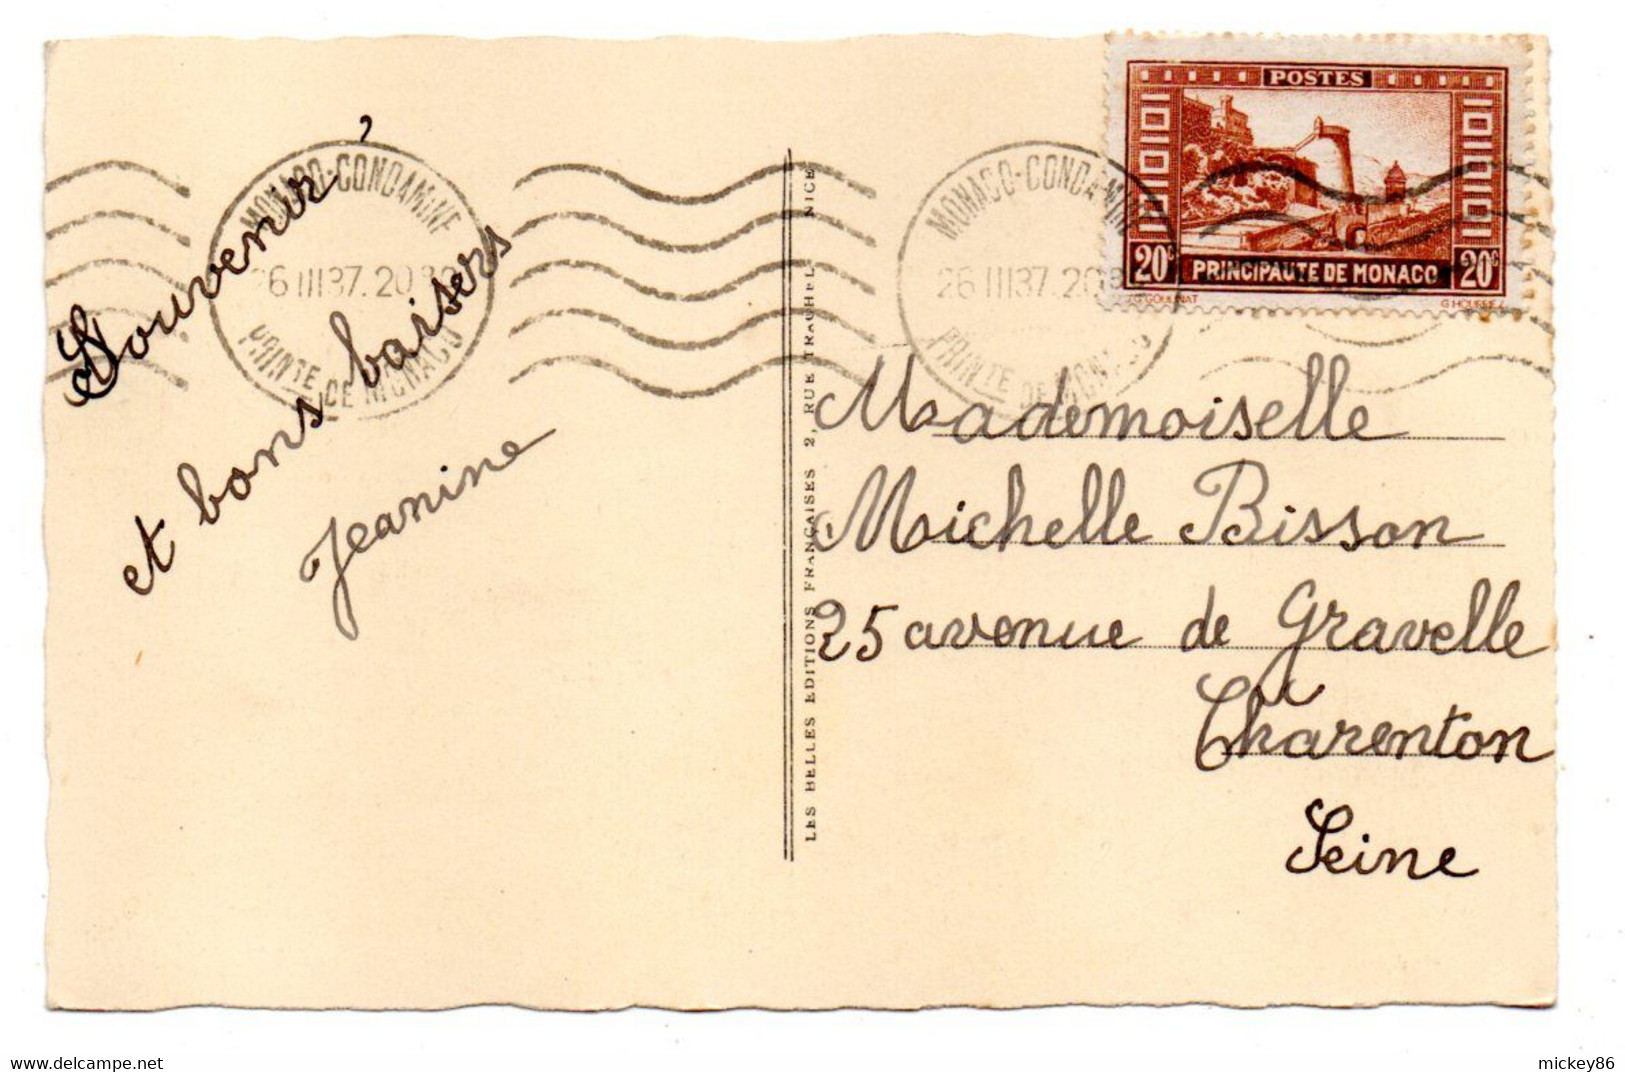 Souvenir
et bons baisers
Jeanine
MONACO-CONDAMINE
26 III 37. 20
PRINTE DE MONACO
LES BELLES EDITIONS FRANÇAISES 2, RUE TRACHEL NICE
MONACO-CONDAMINE
26 III 37. 20
PRINTE DE MONACO
POSTES
20c PRINCIPAUTE DE MONACO 20c
Mademoiselle
Michelle Bisson
25 avenue de Gravelle
Charenton
Seine
mickey86